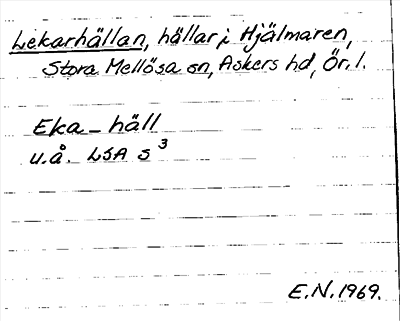 Lekarhällan, hällar i Hjälmaren,
Stora Mellösa sn, Askers hd, Ör. l.
Eka-häll
u.å. LSA S³
E.N. 1969.